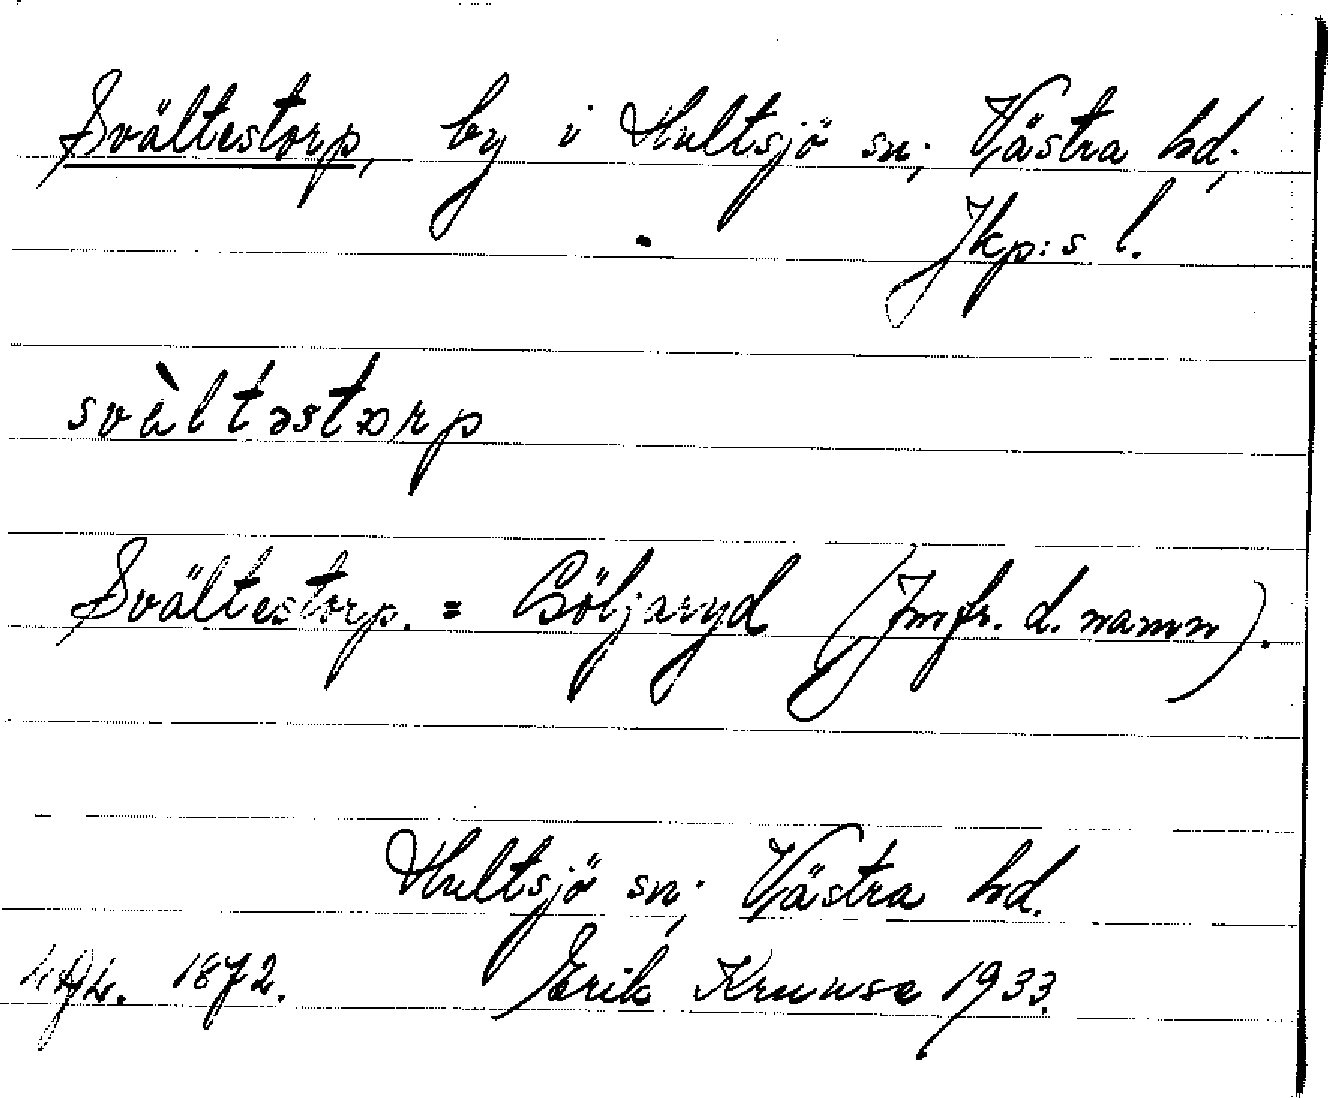 Svältestorp, by i Hultsjö sn; Västra hd;
Jkp:s l.
svàltəstorp
Svältestorp. = Böljaryd (Jmfr. d. namn).
Hultsjö sn; Västra hd.
1872. Erik Kruuse 1933.